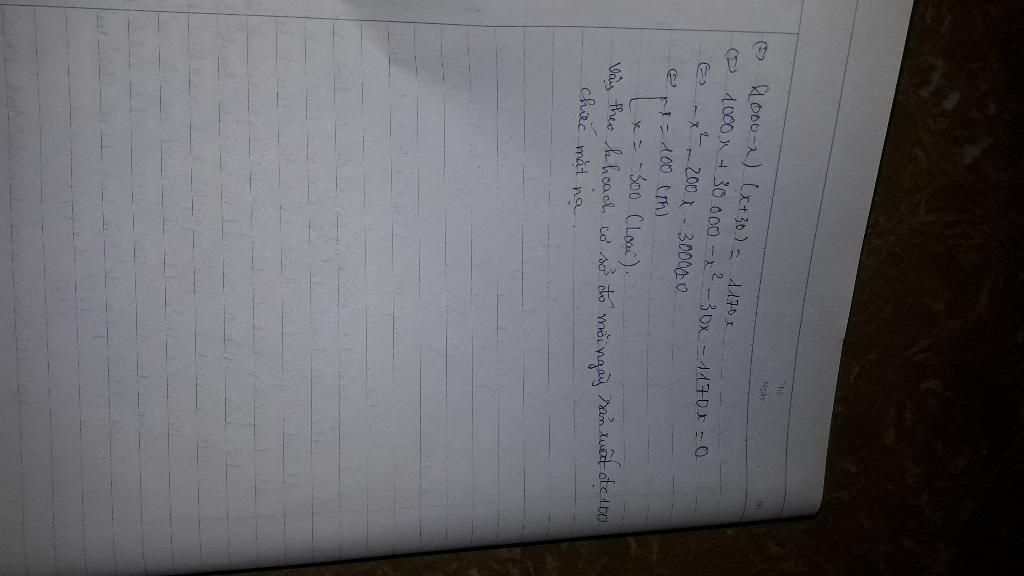 Thứ
Ngày
No.
⇔ (1000-x) (x+30) = 1170x
⇔ 1000x + 30 000 - x² - 30x - 1170x = 0
⇔ -x² - 200x - 30000
⇔ [ x = 100 (TM)
[ x = -300 (Loại).
Vậy theo k hoạch cơ sở đó mỗi ngày sản xuất đc 100
chiếc mặt nạ.